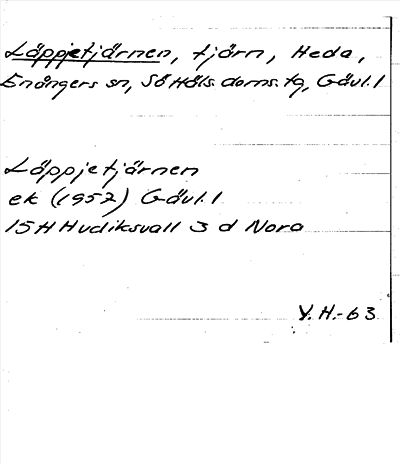 Läppjetjärnen, tjärn, Heda,
Enångers sn, SöHäls. doms. tg, Gävl. l
Läppjetjärnen
ek (1952) Gävl. l
15H Hudiksvall 3 d Nora
Y. H.-63